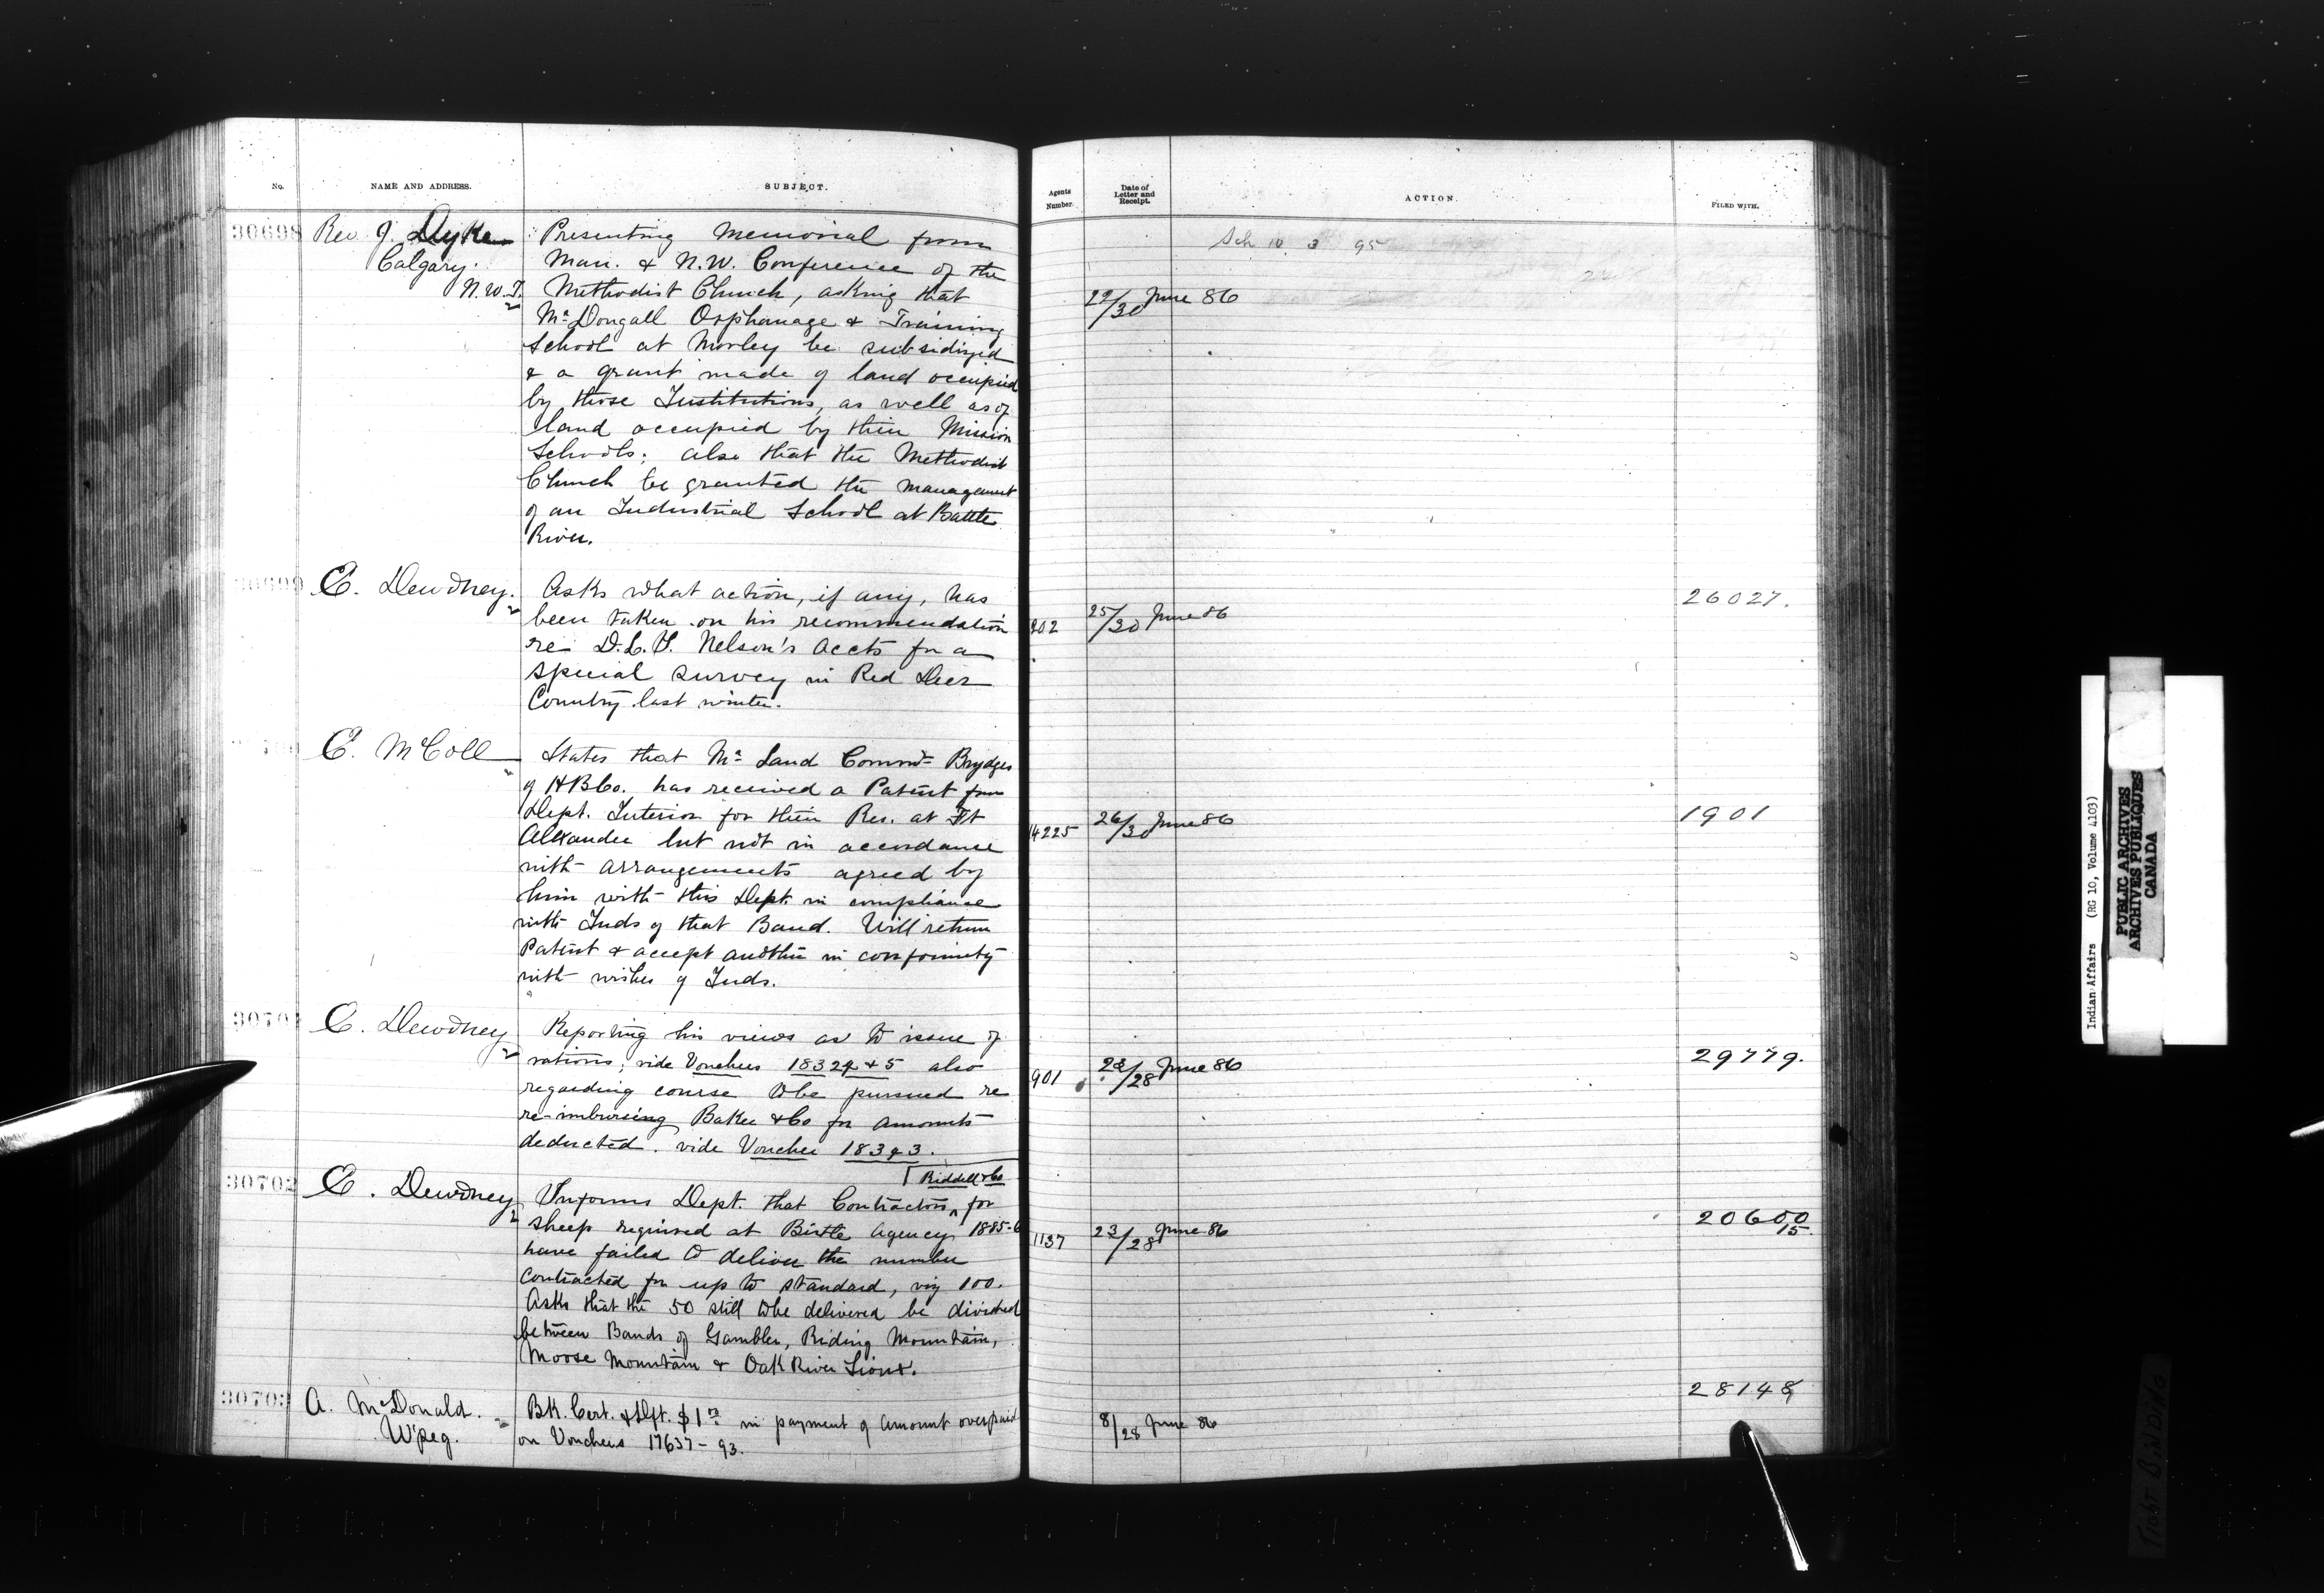 No.
NAME AND ADDRESS.
SUBJECT.
30698
Rev J. Dyke
Calgary.
N.W.T.
Presenting Memorial from
Man. & N.W. Conference of the
Methodist Church, asking that
McDougall Orphanage & Training
School at Morley be subsidized
& a grant made of land occupied
by those Institutions, as well as of
land occupied by their Mission
Schools; also that the Methodist
Church be granted the management
of an Industrial School at Battle
River.
30699
E. Dewdney.
Asks what action, if any, has
been taken on his recommendation
re D.L.S. Nelson's accts for a
special survey in Red Deer
Country last winter.
E. McColl
States that Mr Land Commr Brydges
of HBCo. has received a Patent from
Dept. Interior for their Res. at Ft
Alexander but not in accordance
with arrangements agreed by
him with this Dept. in compliance
with Inds of that Band. Will return
Patent & accept another in conformity
with wishes of Inds.
30701
E. Dewdney
Reporting his views as to issue of
rations; vide Vouchers 18324 & 5 also
regarding course to be pursued re
re-imbursing Baker & Co for amounts
deducted. vide Voucher 18343.
30702
E. Dewdney
Riddell & Co
Informs Dept. that Contractors for
sheep required at Birtle Agency 1885-6
have failed to deliver the number
contracted for up to standard, viz 100.
Asks that the 50 still to be delivered be divided
between Bands of Gambler, Riding Mountain,
Moose Mountain & Oak River Sioux.
30703
A. McDonald.
W'peg.
Bk. Cert. & Dft. $1 in payment of amount overpaid
on Vouchers 17637-93.
Agents
Number.
Date of
Letter and
Receipt.
ACTION.
FILED WITH.
Sch 10 3 95
22/30 June 86
202
25/30 June 86
26027.
14225
26/30 June 86
1901
901
23/28 June 86
29779.
1137
23/28 June 86
20600
15.
8/28 June 86
28148
Indian Affairs (RG 10, Volume 4103)
PUBLIC ARCHIVES
ARCHIVES PUBLIQUES
CANADA
TIGHT BINDING